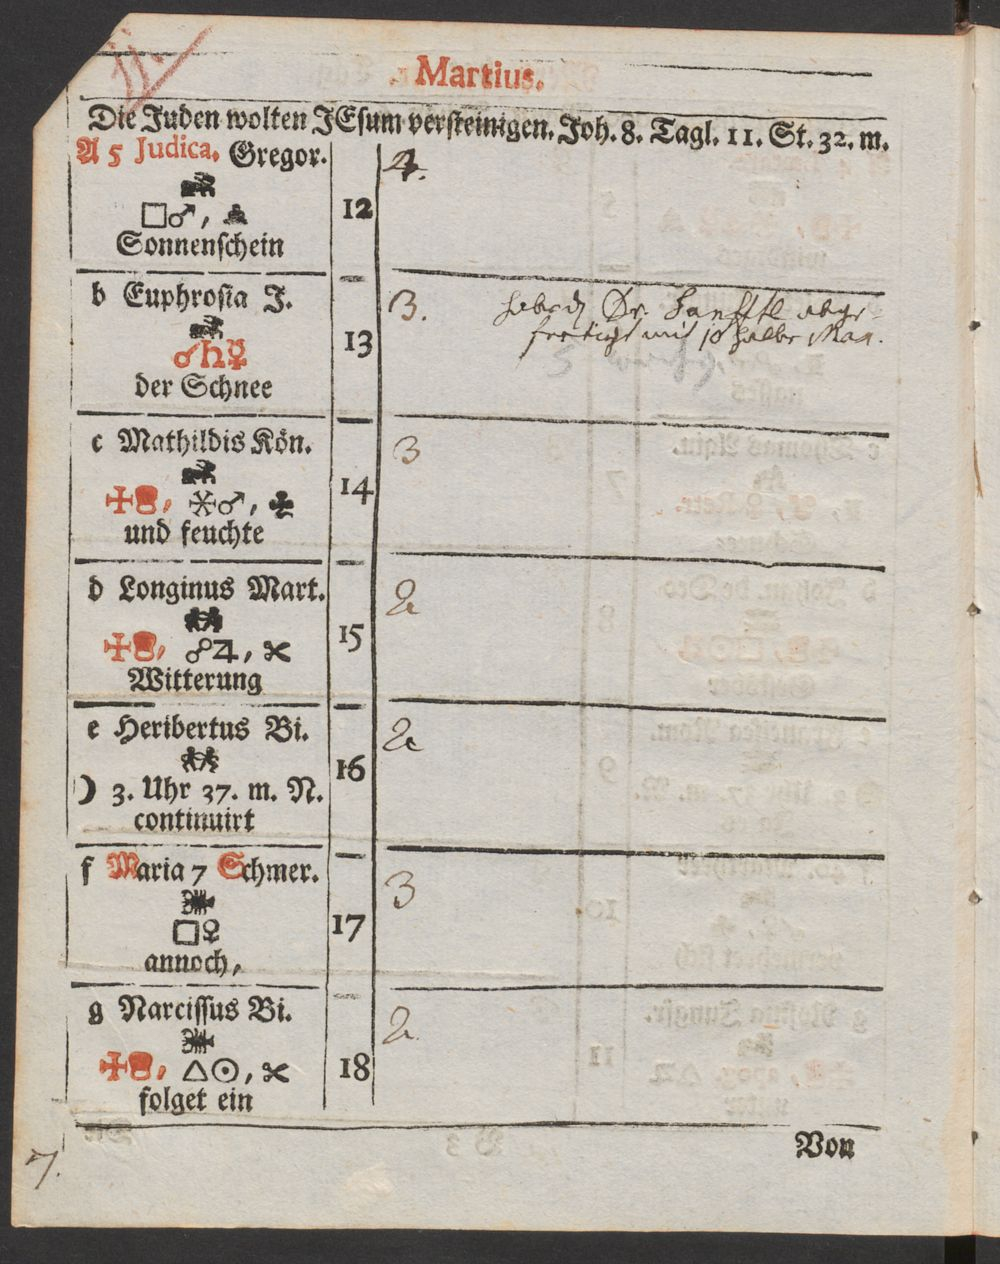 11.
Martius.
Die Juden wolten JEsum versteinigen. Joh. 8. Tagl. 11. St. 32. m.
A 5 Judica. Gregor.
□♂, 
Sonnenschein
12
4.
b Euphrosia J.
♂♄☿
der Schnee
13
3.
habe Dr. abge-
fertigt mit 10 halbe Max.
c Mathildis Kön.
✠, ⚹♂, ♣
und feuchte
14
3
d Longinus Mart.
✠, ☍♃, ✂
Witterung
15
2
e Heribertus Bi.
☽ 3. Uhr 37. m. N.
continuirt
16
2
f Maria 7 Schmer.
□♀
annoch,
17
3
g Narcissus Bi.
✠, △☉, ✂
folget ein
18
2
Von
7.